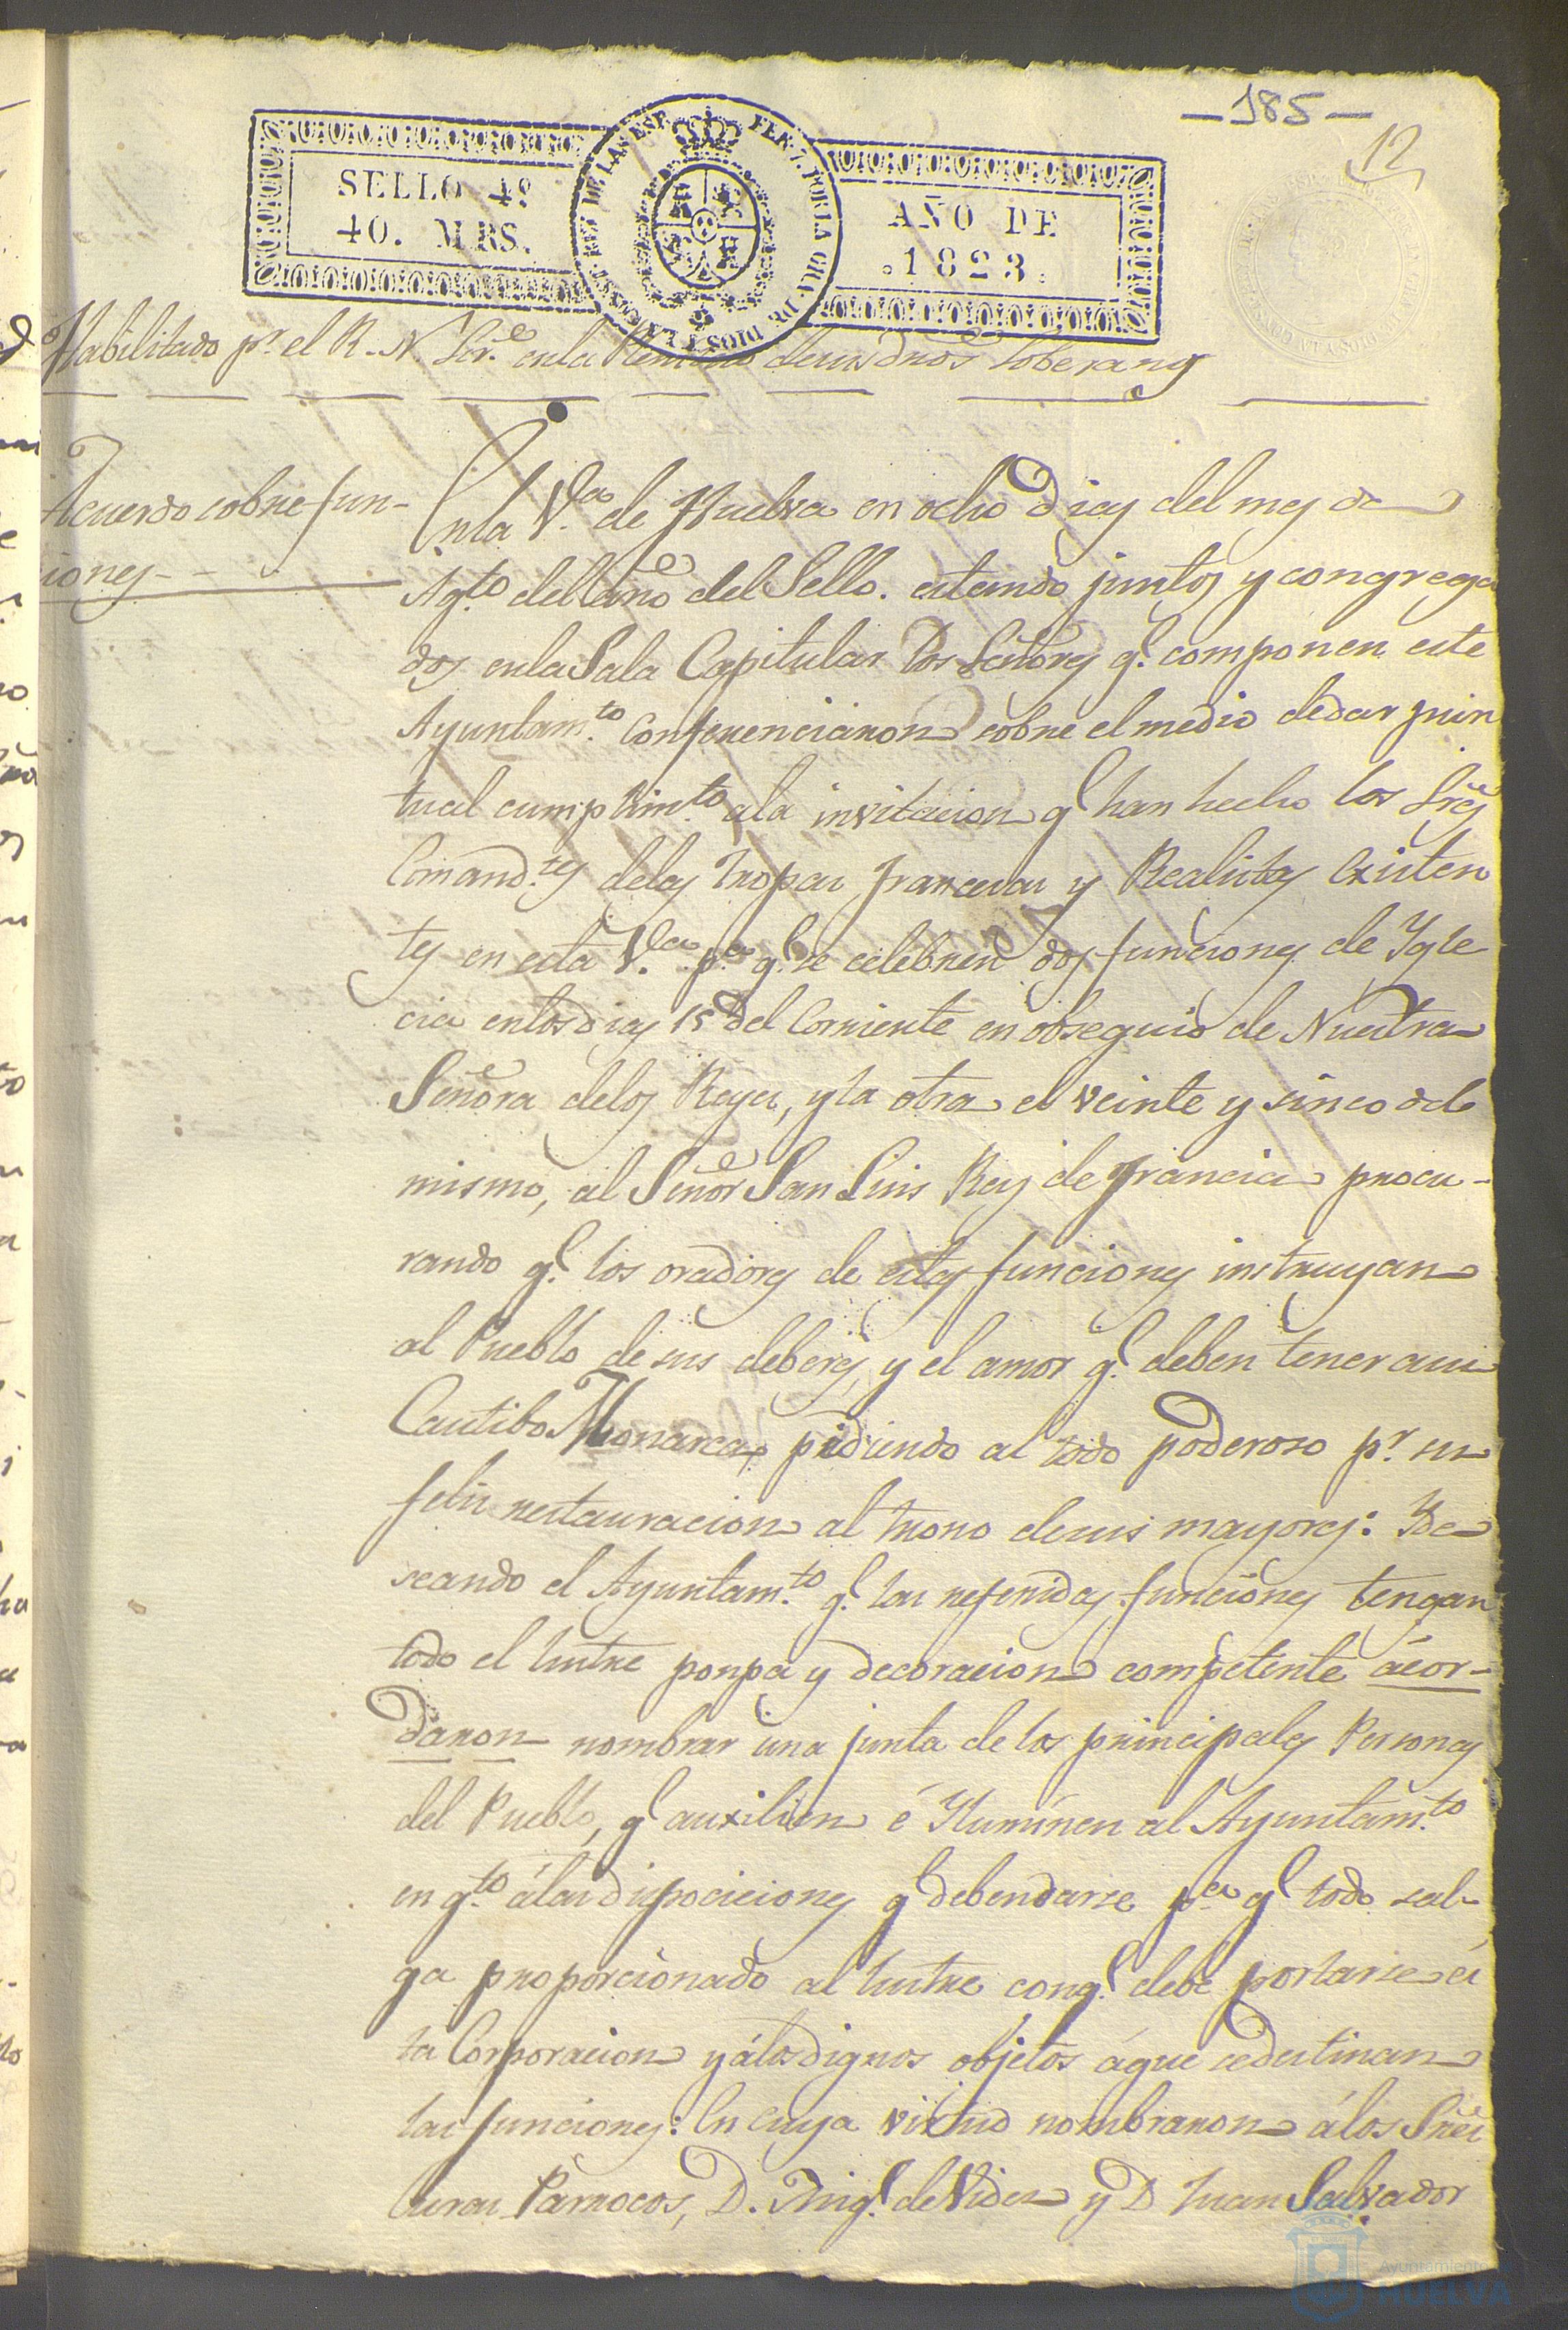 -185-
12
SELLO 4º
40. MRS.
FERN. 7. POR LA GRA. DE DIOS Y LA CONST. REY DE LAS ESP.
AÑO DE
1823.
Habilitado pr. el R. N. Sr. en la Plenitud de sus dros Soberanos
Acuerdo sobre fun-
ciones--
En la V.a de Huelva en ocho dias del mes de
Agto. del año del Sello. estando juntos y congrega
dos en la Sala Capitular los Señores q.e componen este
Ayuntam.to Conferenciaron sobre el medio de dar pun
tual cumplim.to a la invitacion q.e han hecho los Sres
Comand.tes de las tropas francesas y Realistas existen
tes en esta V.a p.a q.e se celebren dos funciones de Ygle
cia en los dias 15 del Corriente en obsequio de Nuestra
Señora de los Reyes, y la otra el veinte y sinco del
mismo, al Señor San Luis Rey de Francia procu-
rando q.e los oradores de estas funciones instruyan
al Pueblo de sus deberes, y el amor q.e deben tener a su
Cautibo Monarca, pidiendo al todo poderoso pr. su
felis restauracion al trono de sus mayores: Y de
seando el Ayuntam.to q.e las referidas funciones tengan
todo el lustre ponpa y decoracion competente ácor-
daron nombrar una junta de los principales Personas
del Pueblo, q.e auxilien é Yluminen al Ayuntam.to
en q.to á las dispociciones q.e deben darse p.a q.e todo sal-
ga proporcionado al lustre con q.e debe portarse es
ta Corporacion y á los dignos objetos á que se destinan
las funciones: En cuya virtud nombraron á los Sres
Curas Parrocos, D. Mig.l de Vides y D Juan Salvador
Ayuntamiento
HUELVA